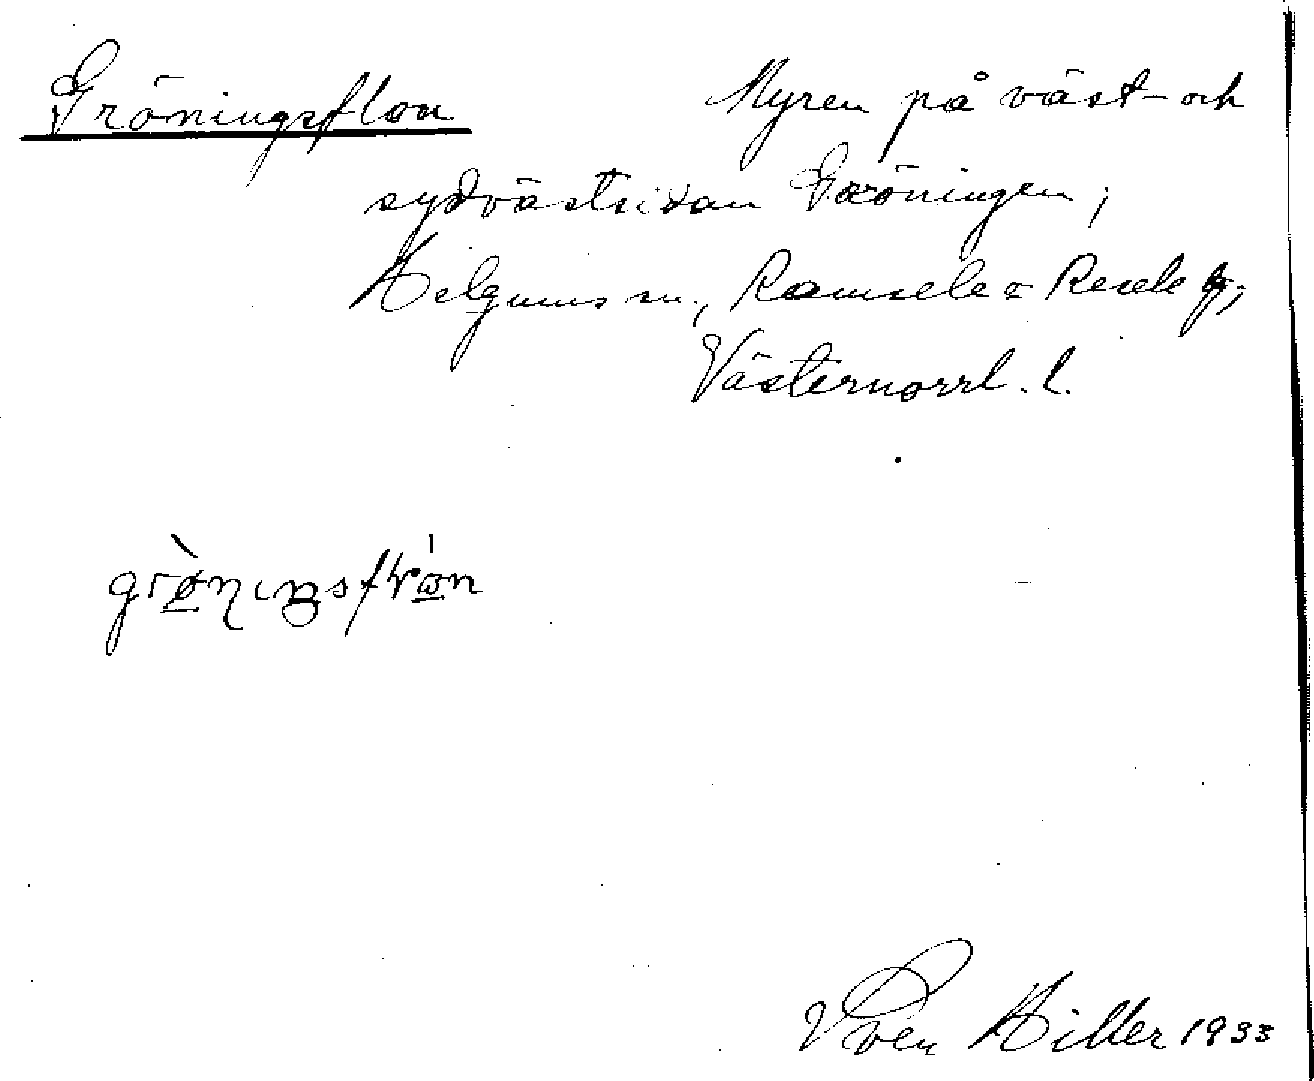 Gröningsflon
Myren på väst- och
sydvästsidan Gröningen,
Helgums sn., Ramsele o Resele
Västernorrl. l.
Sven Hiller 1933